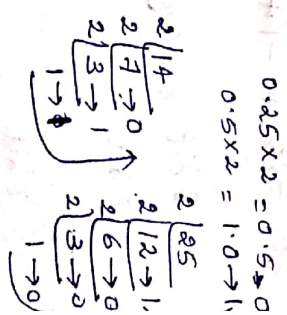 0.25×2 = 0.5→0
0.5×2 = 1.0→1
2 | 14
2 | 7 → 0
2 | 3 → 1
1 →
2 | 25
2 | 12 → 1
2 | 6 → 0
2 | 3 → 0
1 → 0